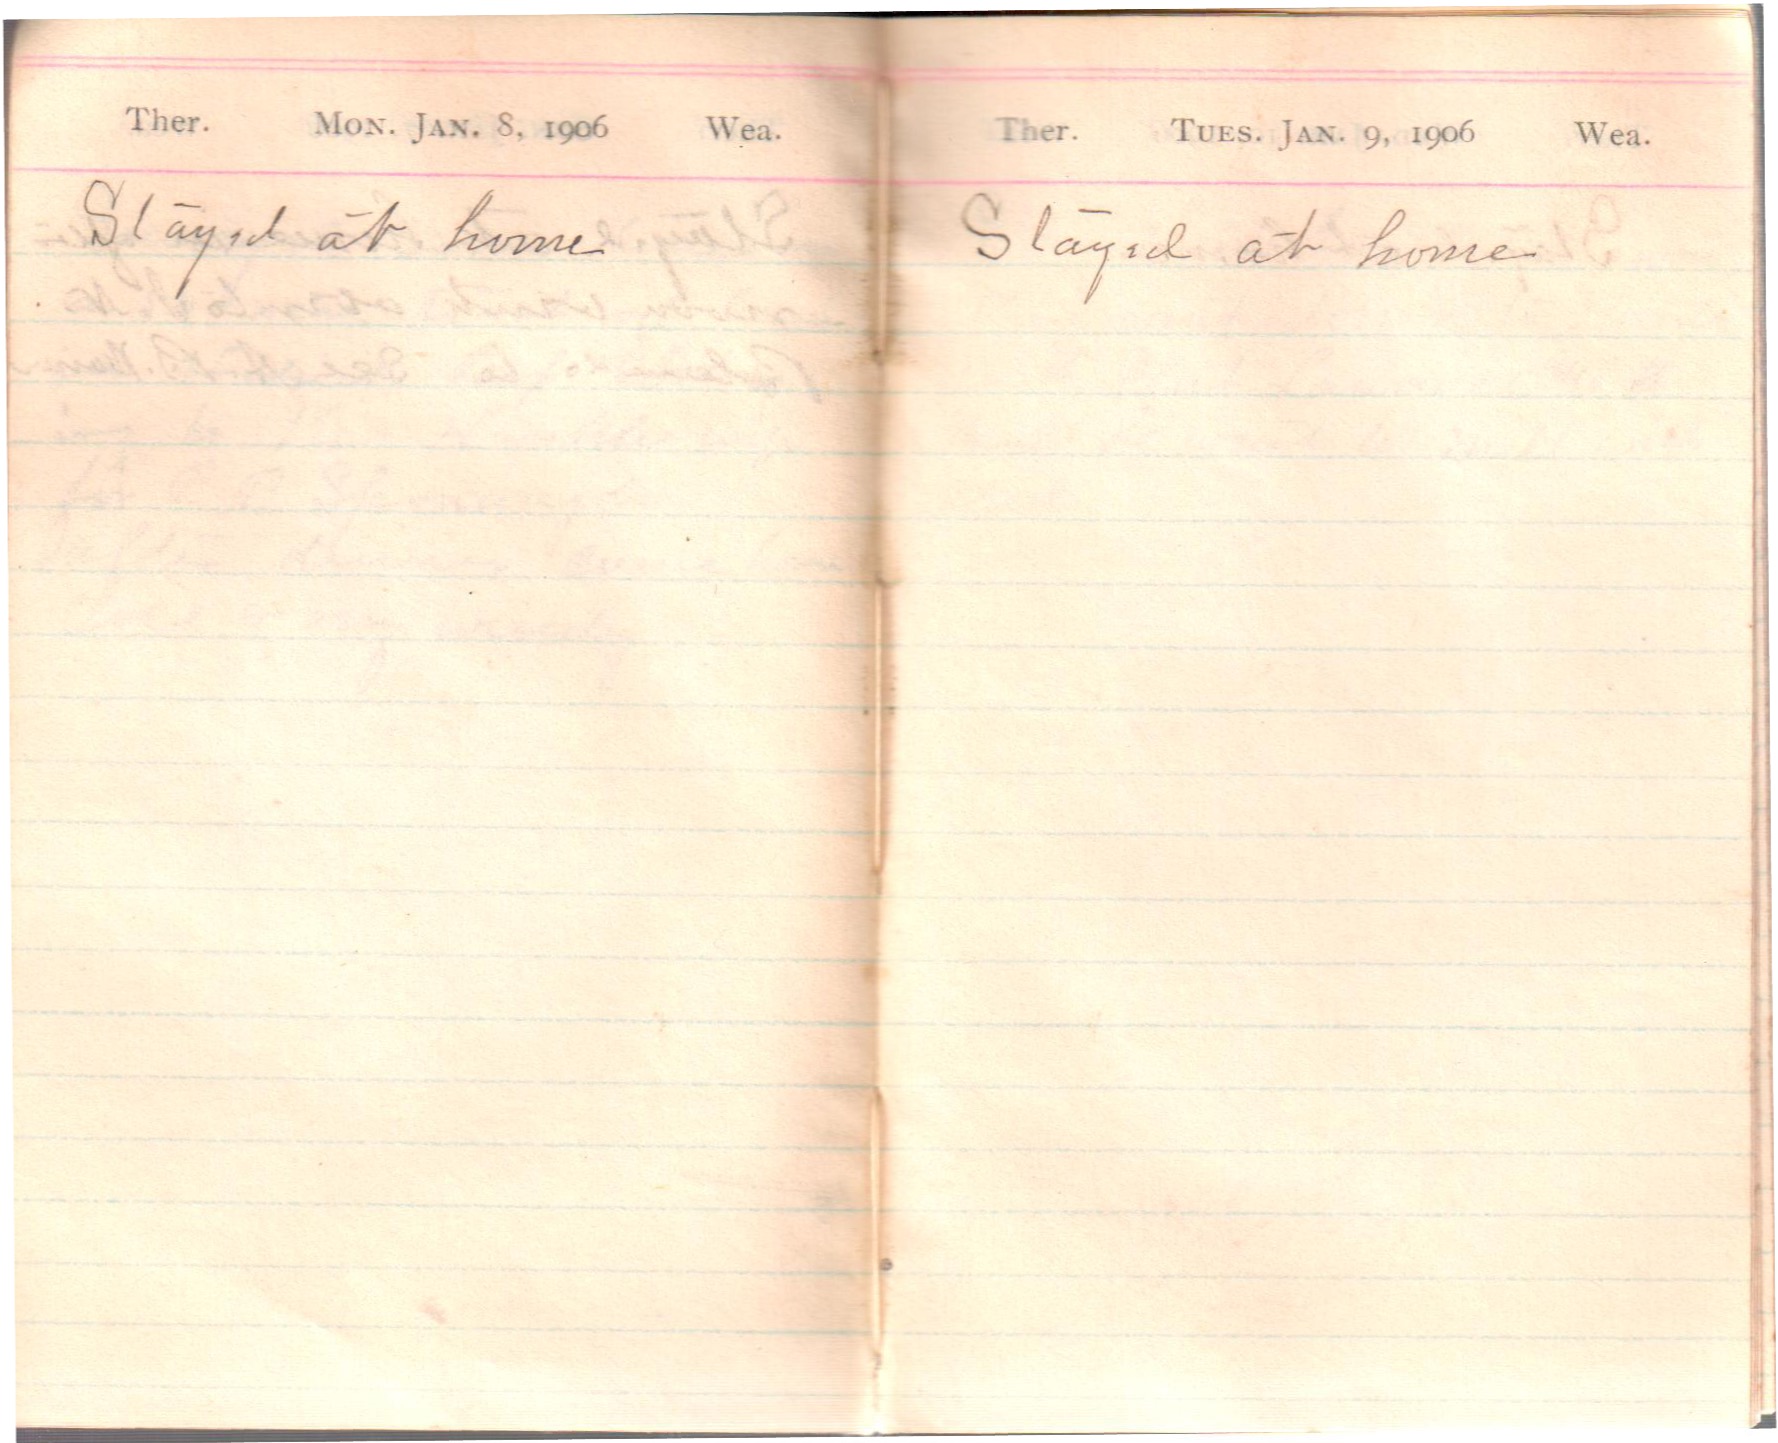 Ther. Mon. Jan. 8, 1906 Wea.
Stayed at home
Ther. Tues. Jan. 9, 1906 Wea.
Stayed at home